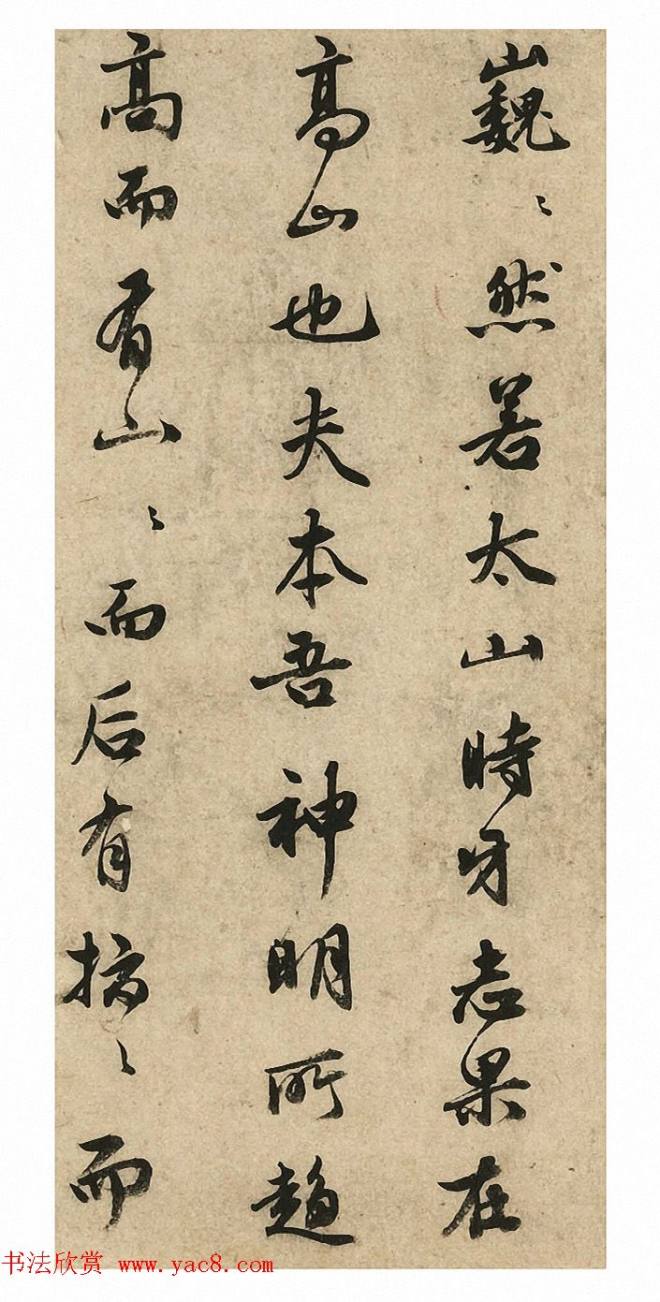 巍〻然若太山時牙志果在
高山也夫本吾神明所趨
高而有山〻而后有摘〻而
书法欣赏 www.yac8.com